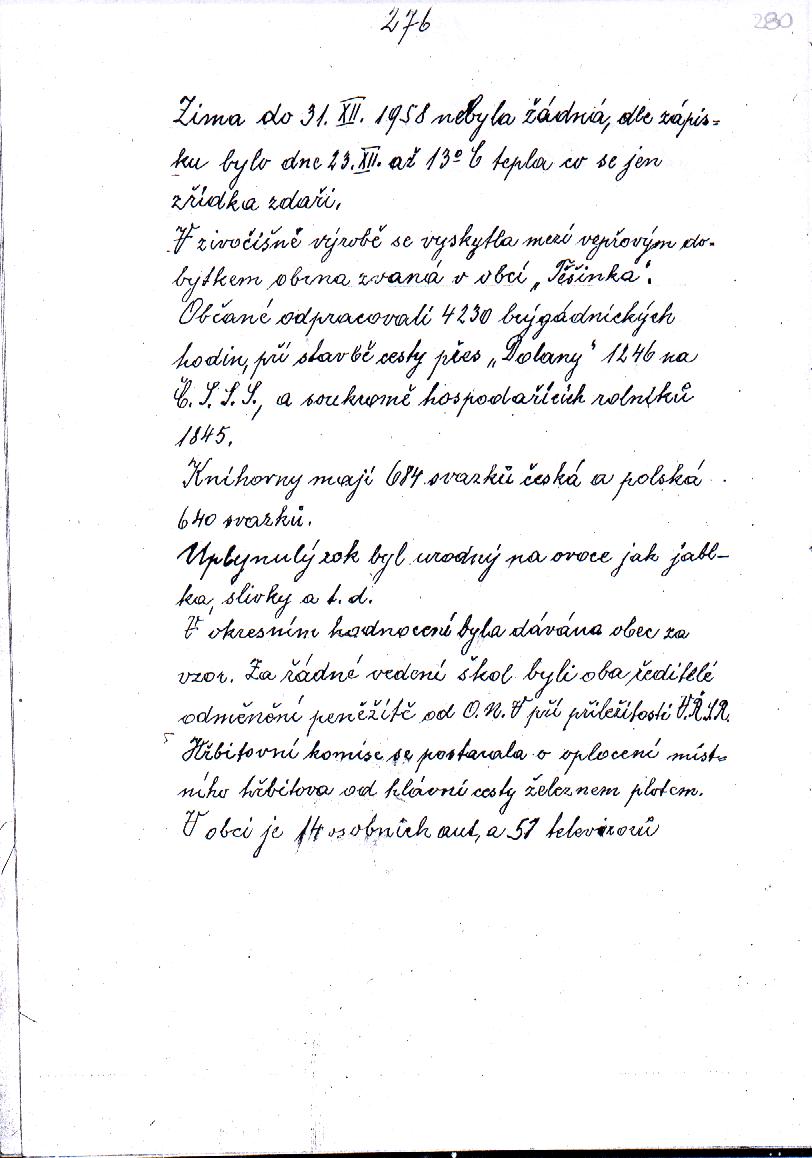 276
280
Zima do 31. XII. 1958 nebyla žádná, dle zápis=
ku bylo dne 23. XII. až 13° C tepla co se jen
zřídka zdaří.
V zivočišně výrobě se vyskytla mezi vepřovým do-
bytkem obrna zvaná v obci „Těšinka".
Občané odpracovali 4230 brýgádnických
hodin, při stavbě cesty přes „Dolany" 1246 na
Č. S. S. S., a soukromě hospodařících rolníků
1845.
Knihovny mají 684 svazků česká a polská
640 svazků.
Uplynulý rok byl urodný na ovoce jak jabl-
ka, slivky a t. d.
V okresním hodnocení byla dávána obec za
vzor. Za řádné vedení škol byli oba ředitelé
odměnění peněžitě od O. N. V při přiležitosti V.Ř.S.R.
Hřbitovní komise se postarala o oplocení míst=
ního hřbitova od hlávní cesty železnem plotem.
V obci je 14 osobních aut, a 57 televizorů